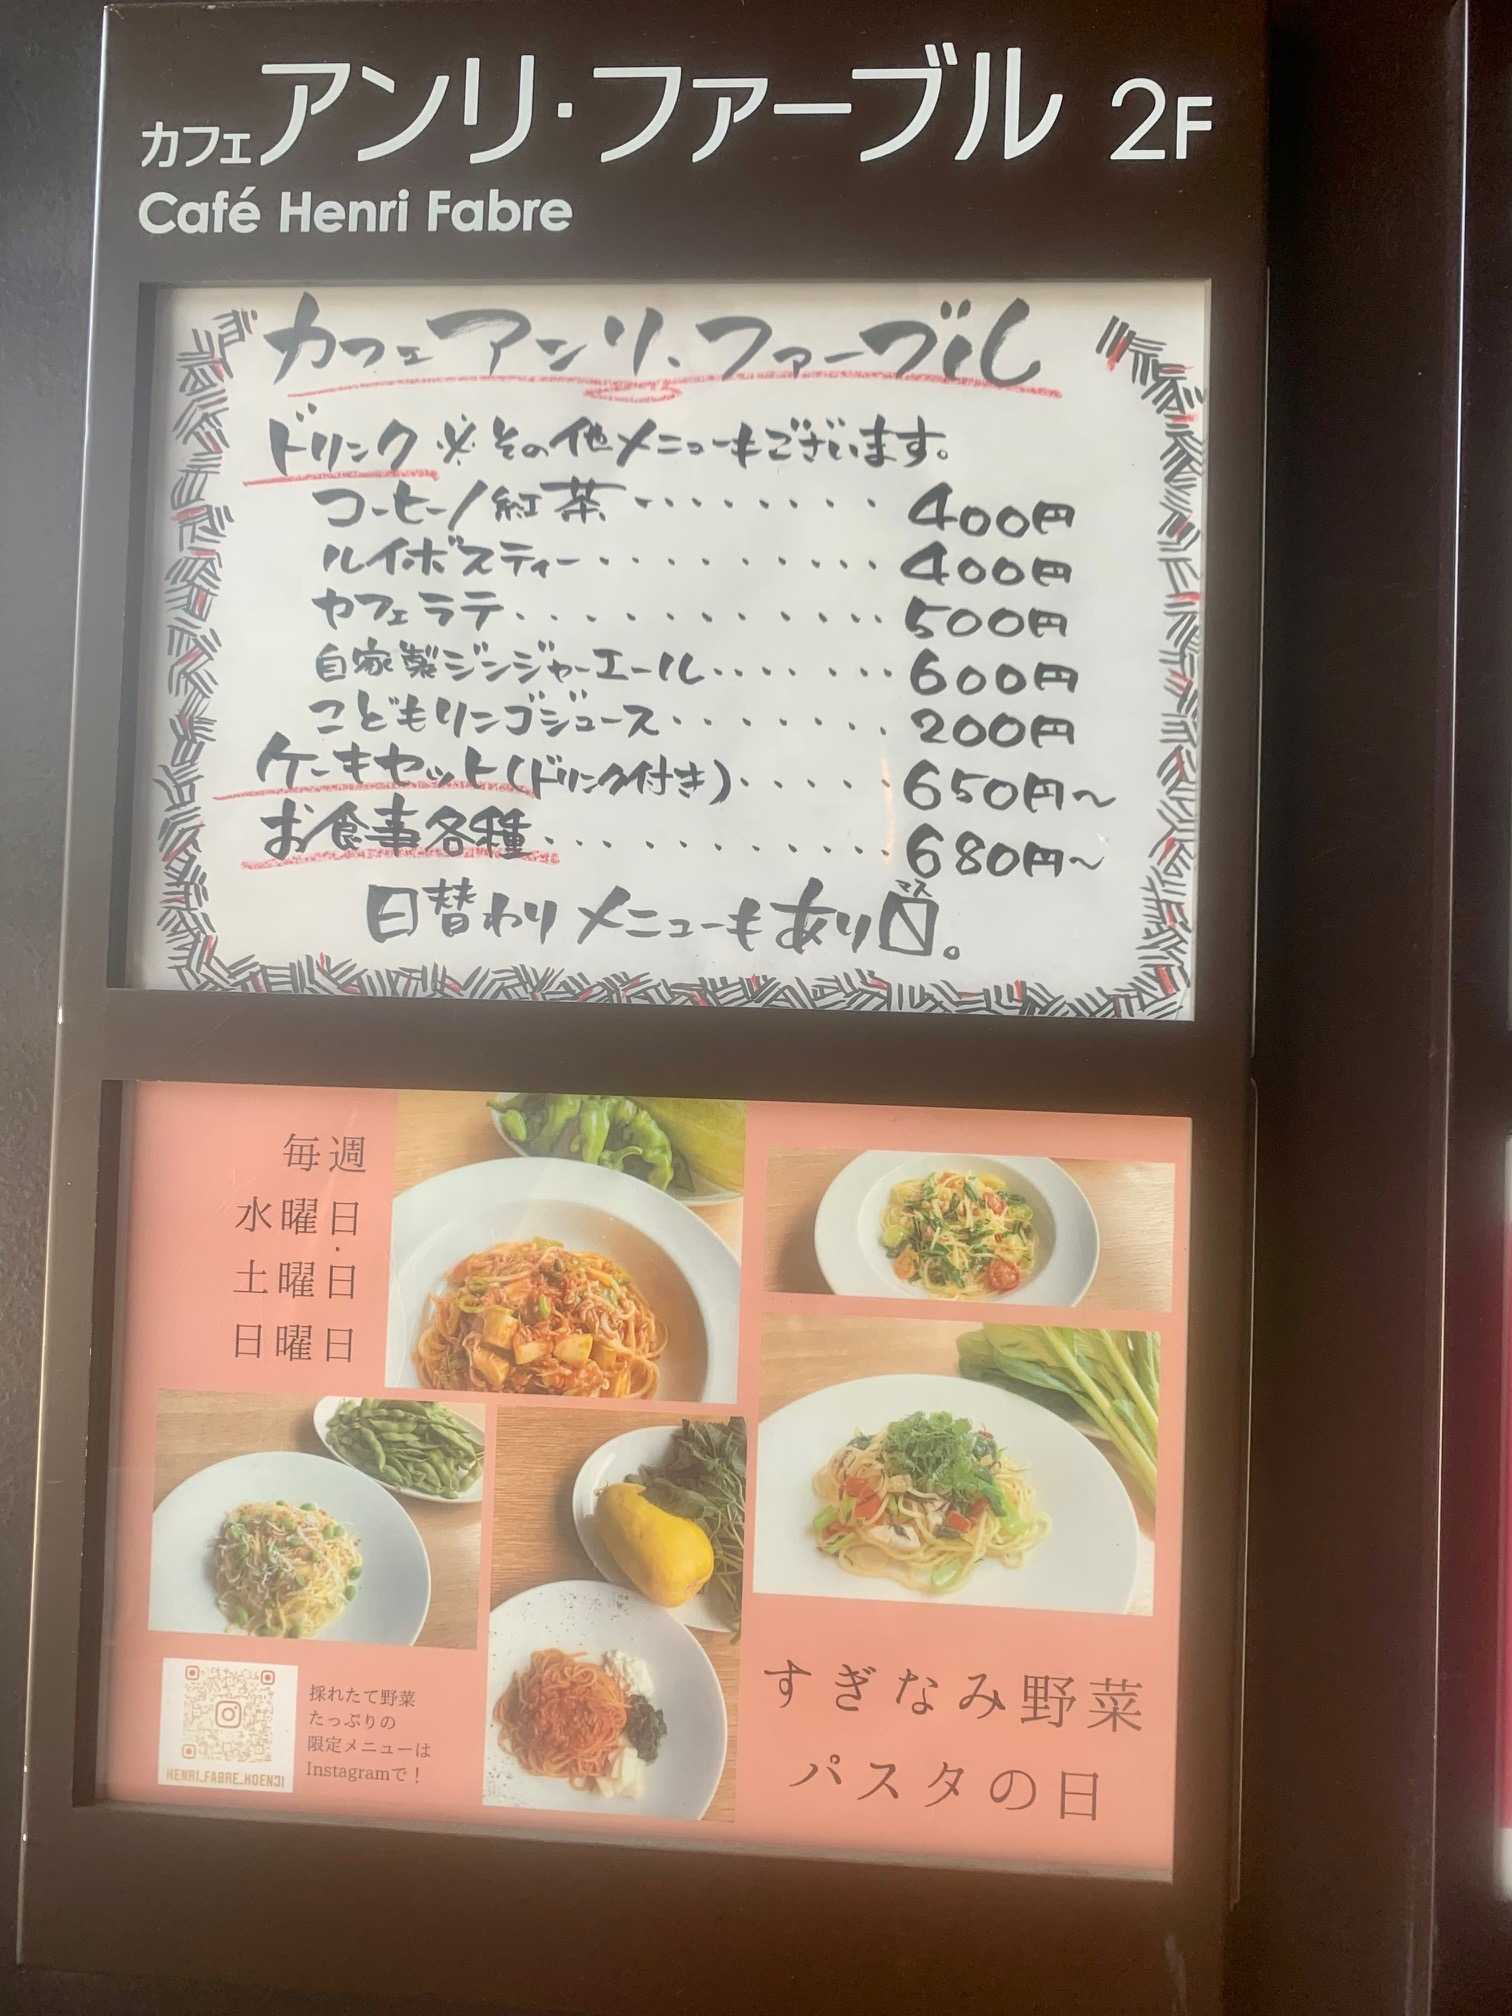 カフェアンリ・ファーブル 2F
Café Henri Fabre
カフェアンリ・ファーブル
ドリンク ※その他メニューもございます。
コーヒー/紅茶・・・・・・・・・400円
ルイボスティー・・・・・・・・・・400円
カフェラテ・・・・・・・・・・・・500円
自家製ジンジャーエール・・・・・・・600円
こどもリンゴジュース・・・・・・・200円
ケーキセット(ドリンク付き)・・・・・650円〜
お食事各種・・・・・・・・・・・・680円〜
日替わりメニューもあり〼。
マス
毎週
水曜日・
土曜日
日曜日
すぎなみ野菜
パスタの日
採れたて野菜
たっぷりの
限定メニューは
Instagramで!
HENRI_FABRE_KOENJI